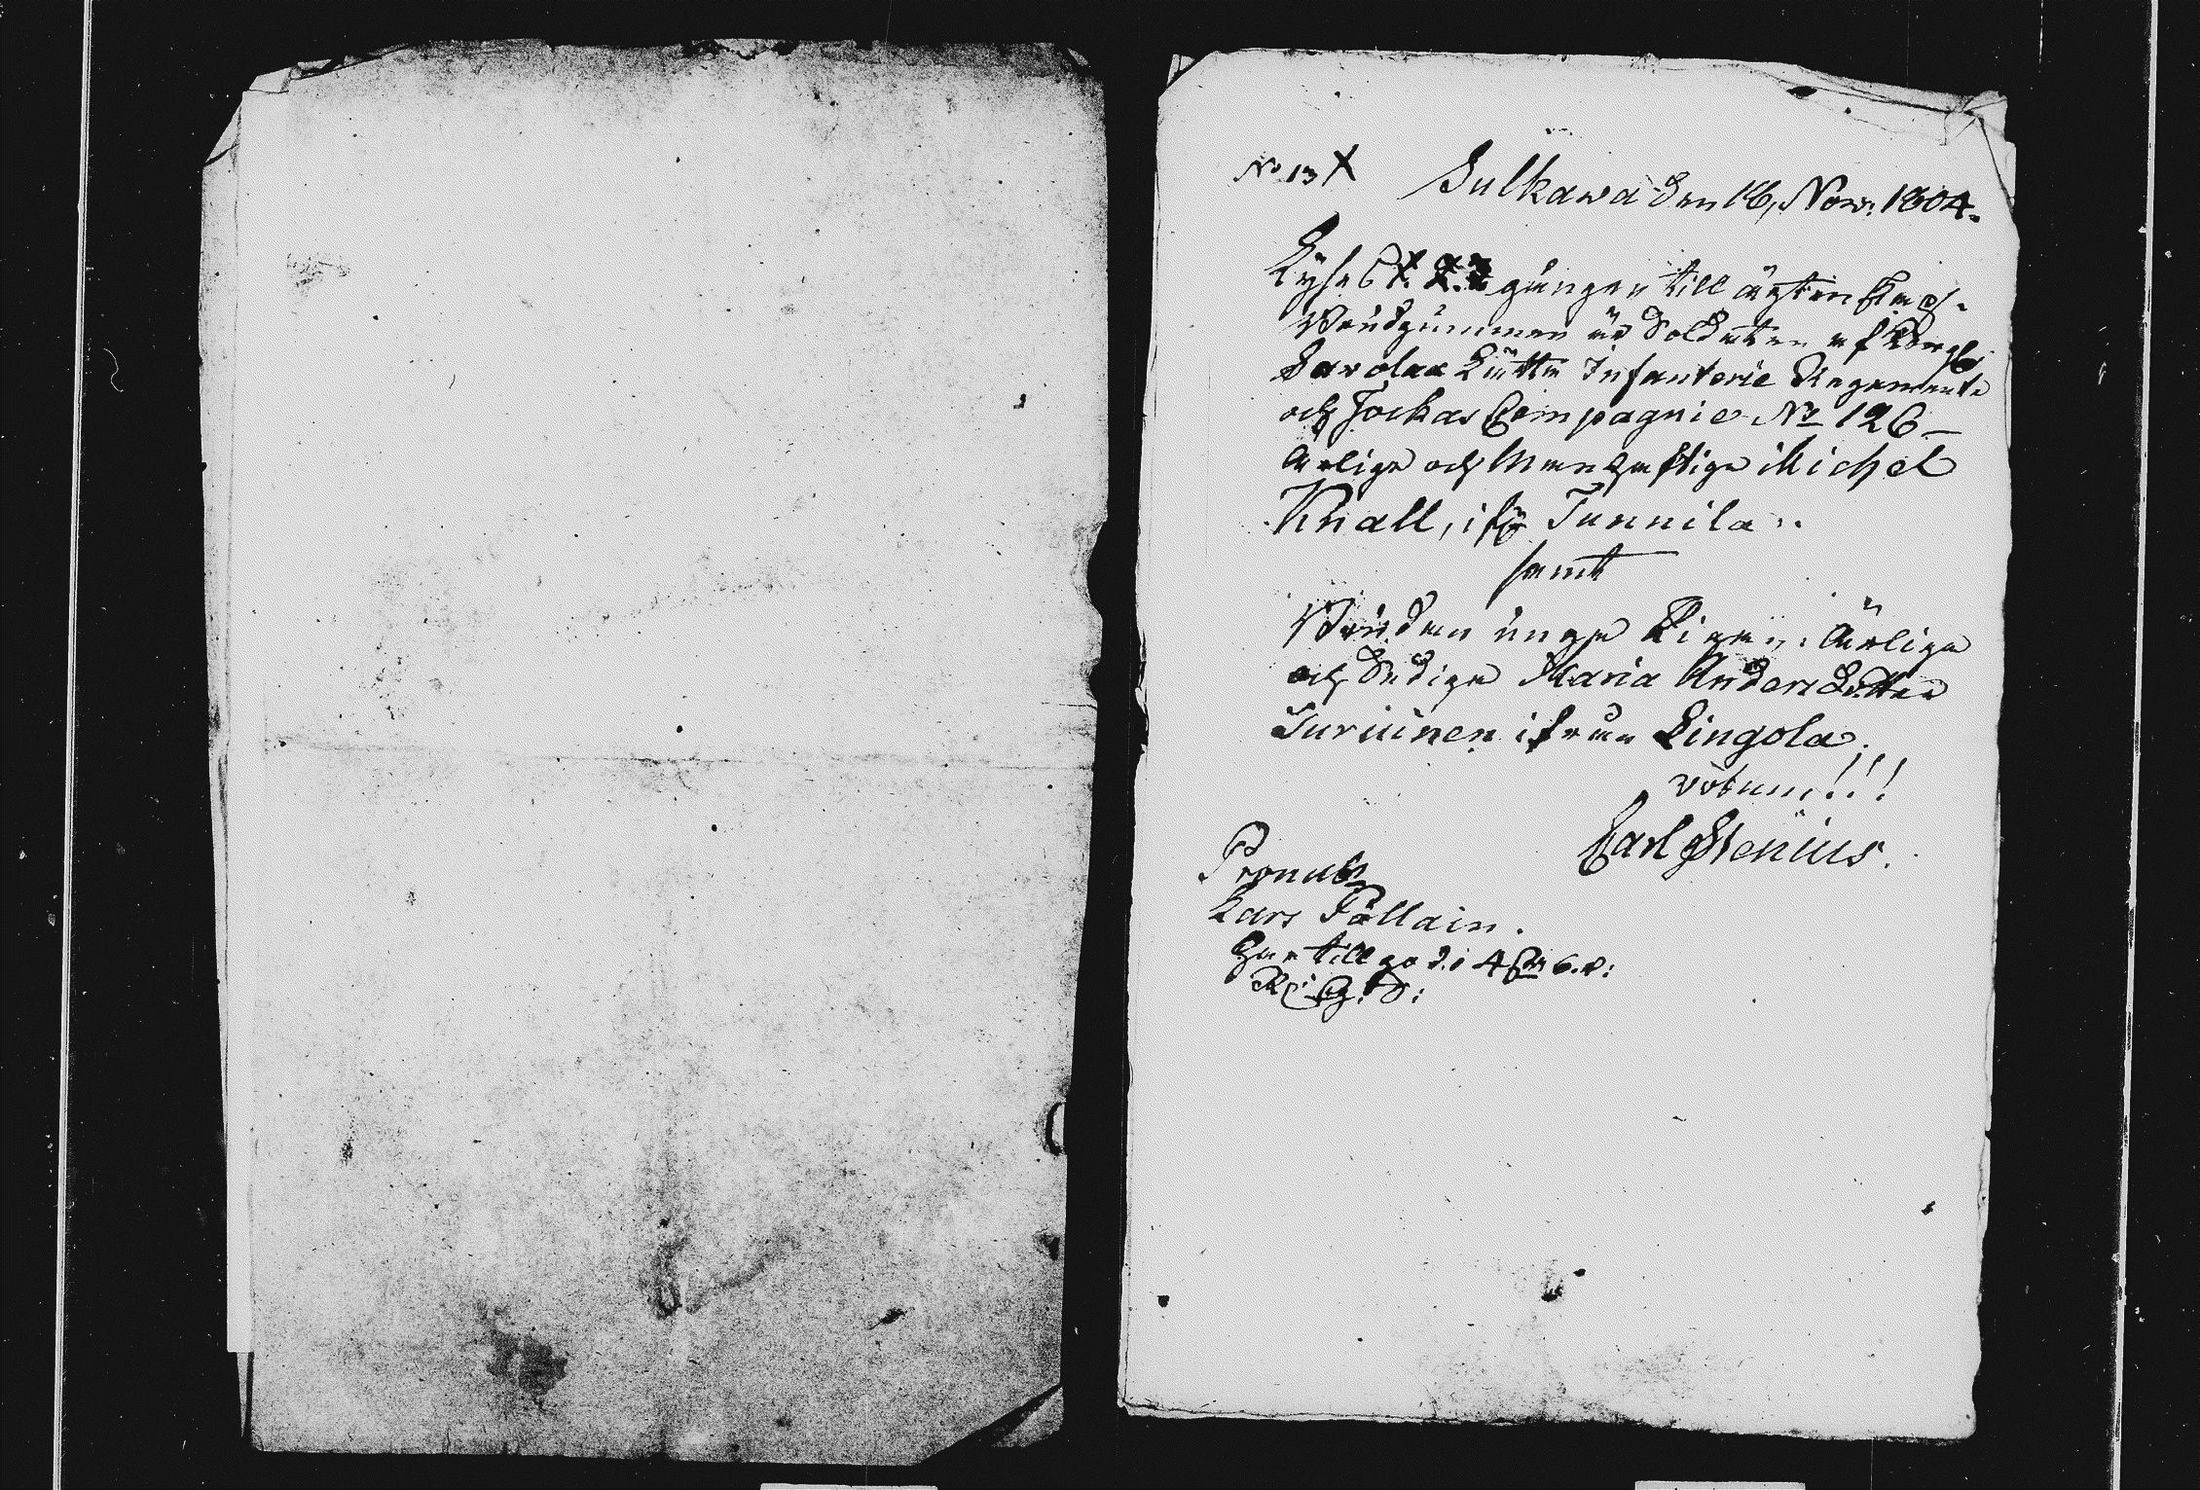 No 13 X Sulkawa den 16, Nov: 1804.
Lyses 1. 2. 3 gången till ägtenskap.
Brudgummen är Soldaten af Kongl:
Savolax Lätta Infanterie Regemente
och Jockas Compagnie No 126 –
ärlige och Manhaftige Michel
Knall, ifr: Tunnila.
samt
Bruden unga Pigan, ärliga
och Sediga Maria Anders Dotter
Turuinen ifrån Lingola.
votum!!!
Carl Stenius.
Pronub:
Lars Pöllain.
har till godo 4 6. r:
R: G: S: